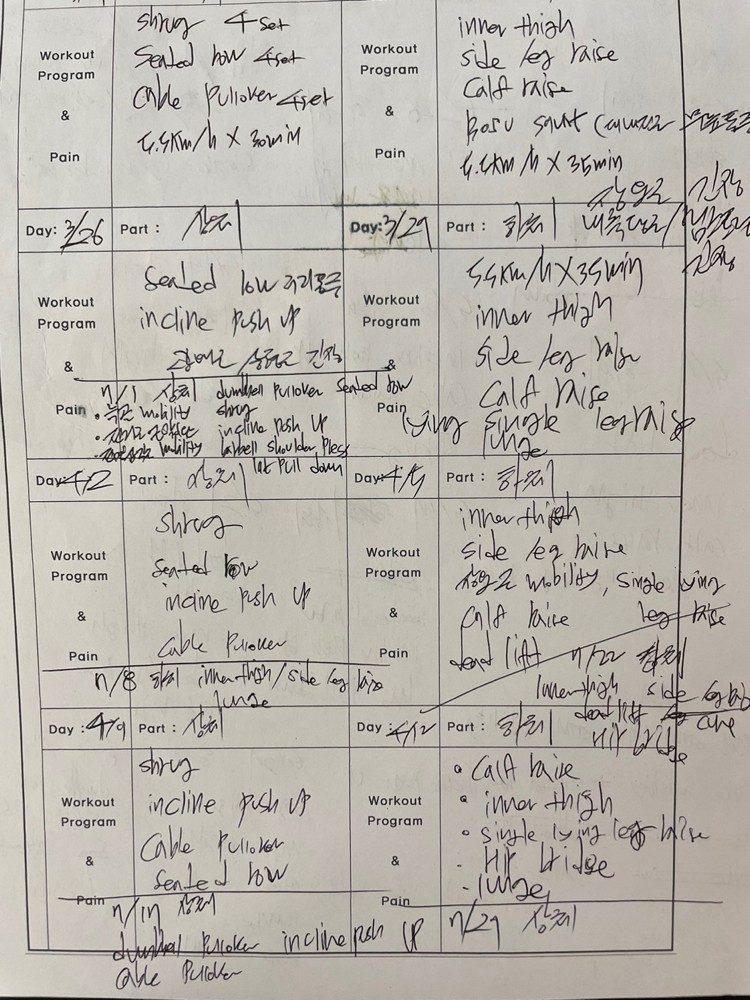 shrug 4set
Workout
Program
&
Pain
Seated row 4set
Cable Pullover 4set
5.5km/h X 30min
Workout
Program
&
Pain
inner thigh
side leg raise
Calf raise
Bosu squat
5.5km/h X 35min
장요근 긴장
Day: 3/26
Part : 상체
Workout
Program
&
Pain
Seated low
incline Push UP
긴장
상체 dumbbell Pullover Seated low
mobility shrug
incline Push UP
mobility barbell shoulder Press
lat Pull down
Day: 3/29
Part : 하체
긴장
Workout
Program
&
Pain
5.5km/h X 35min
inner thigh
side leg raise
Calf raise
lying single leg raise
lunge
Day: 4/2
Part : 상체
Workout
Program
&
Pain
shrug
Seated row
incline Push UP
Cable Pullover
하체 inner thigh / side leg raise
lunge
Day: 4/5
Part : 하체
Workout
Program
&
Pain
inner thigh
side leg raise
장요근 mobility, Single lying
Calf raise leg raise
dead lift
inner thigh side leg raise
dead lift
Hip bridge
Day : 4/9
Part : 상체
Workout
Program
&
Pain
shrug
incline Push UP
Cable Pullover
Seated row
상체
dumbbell Pullover incline Push UP
Cable Pullover
Day : 4/12
Part : 하체
Workout
Program
&
Pain
• Calf raise
• inner thigh
• single lying leg raise
• Hip bridge
• lunge
상체